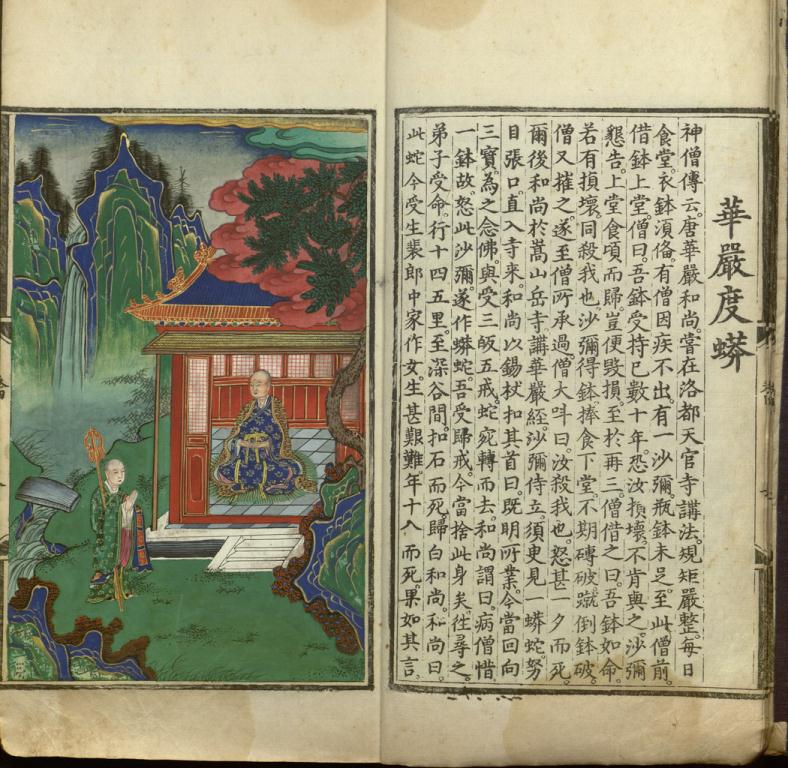 華嚴度蟒
神僧傳云。唐華嚴和尚。嘗在洛都天官寺講法。規矩嚴整。每日
食堂。衣鉢須俻。有僧因疾不出。有一沙彌。瓶鉢未足。至此僧前。
借鉢上堂。僧曰。吾鉢受持已數十年。恐汝損壞。不肯與之。沙彌
懇告。上堂食頃而歸。豈便毀損。至於再三。僧借之曰。吾鉢如命。
若有損壞。同殺我也。沙彌得鉢。捧食下堂。不期磚破。蹴倒鉢破。
僧又摧之。遂至僧所承過。僧大呌曰。汝殺我也。怒甚一夕而死。
爾後和尚於嵩山岳寺講華嚴經。沙彌侍立。須臾見一蟒蛇。努
目張口。直入寺来。和尚以錫杖扣其首曰。既明所業。今當回向
三寶。為之念佛。與受三皈五戒。蛇宛轉而去。和尚謂曰。病僧惜
一鉢故。怒此沙彌。遂作蟒蛇。吾受歸戒。今當捨此身矣。往尋之。
弟子受命。行十四五里。至深谷間。扣石而死。歸白和尚。和尚曰。
此蛇今受生裴郎中家作女。生甚艱難。年十八而死。果如其言。